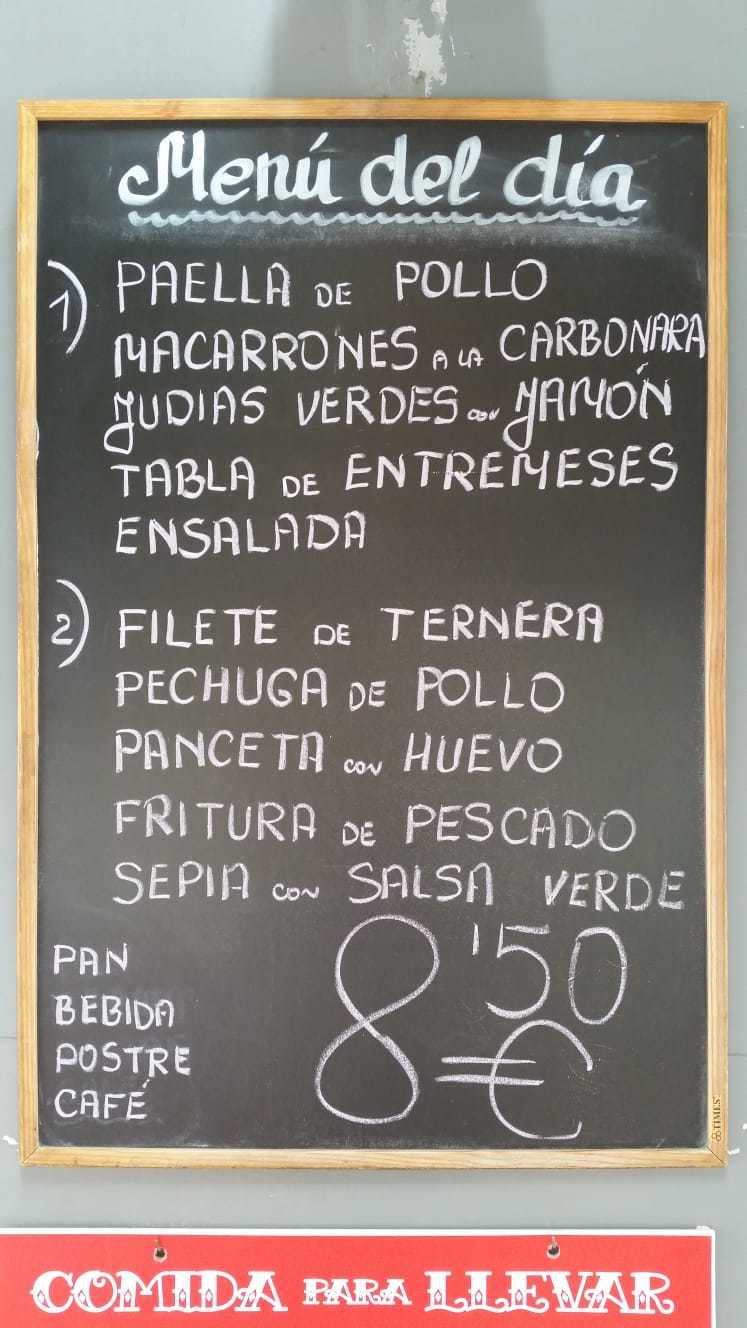 Menú del día
1) PAELLA DE POLLO
MACARRONES A LA CARBONARA
JUDIAS VERDES con JAMÓN
TABLA DE ENTREMESES
ENSALADA
2) FILETE DE TERNERA
PECHUGA DE POLLO
PANCETA con HUEVO
FRITURA DE PESCADO
SEPIA con SALSA VERDE
PAN
BEBIDA
POSTRE
CAFÉ
8'50 €
TIMES
COMIDA PARA LLEVAR